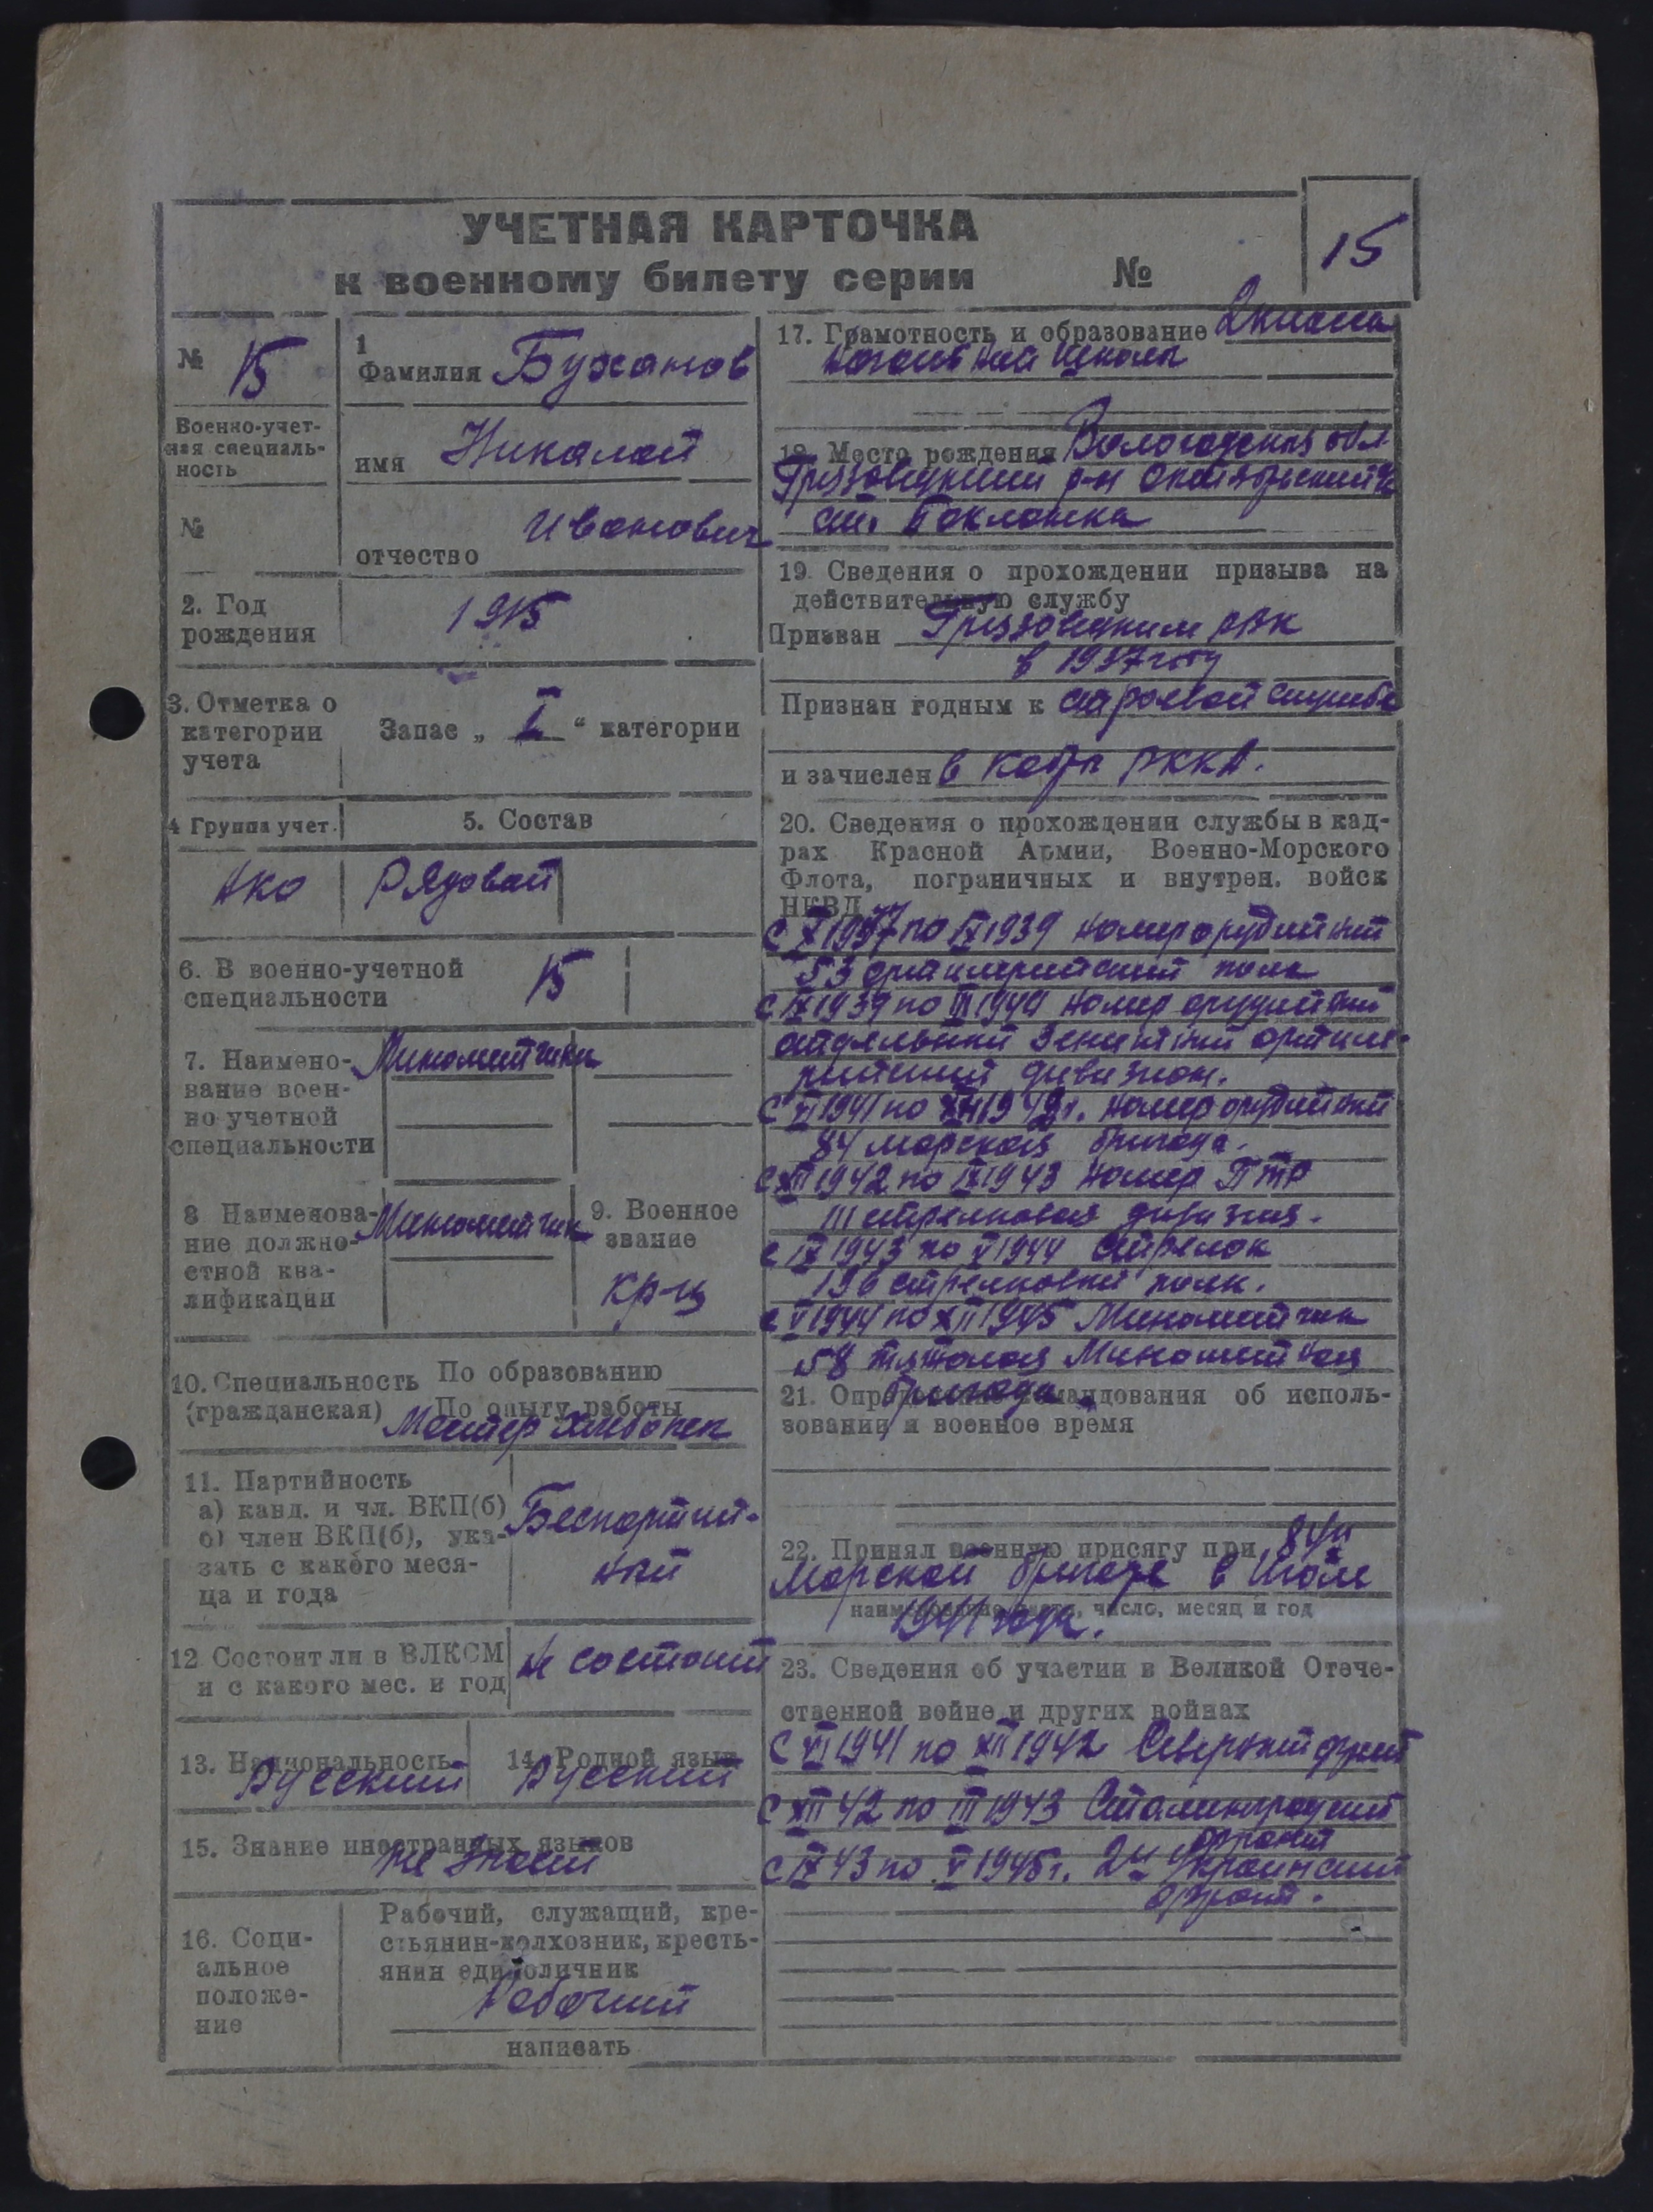 УЧЕТНАЯ КАРТОЧКА
к военному билету серии №
15
№ 15
Военно-учет-
ная специаль-
ность
№
1
Фамилия Буханов
имя Николай
отчество Иванович
2. Год
рождения
1915
3. Отметка о
категории
учета
Запас „ I “ категории
4 Группа учет.
5. Состав
Рядовой
6. В военно-учетной
специальности
15
7. Наимено-
вание воен-
но учетной
специальности
Минометчики
8 Наименова-
ние должно-
стной ква-
лификации
Минометчик
9. Военное
звание
кр-ц
10. Специальность
(гражданская)
По образованию
По опыту работы
Мастер хлебопек
11. Партийность
а) канд. и чл. ВКП(б)
б) член ВКП(б), ука-
зать с какого меся-
ца и года
Беспартий-
ный
12 Состоит ли в ВЛКСМ
и с какого мес. и год
не состоит
13. Национальность
Русский
14. Родной язык
Русский
15. Знание иностранных языков
не знает
16. Соци-
альное
положе-
ние
Рабочий, служащий, кре-
стьянин-колхозник, кресть-
янин единоличник
Рабочий
написать
17. Грамотность и образование 2 класса
школа
18. Место рождения Вологодская обл
Грязовецкий р-н Октябрьский
ст. Бакланка
19. Сведения о прохождении призыва на
действительную службу
Призван Грязовецким РВК
в 1937 году
Признан годным к строевой службе
и зачислен в кадры РККА.
20. Сведения о прохождении службы в кад-
рах Красной Армии, Военно-Морского
Флота, пограничных и внутрен. войск
НКВД
с X 1937 по IX 1939 номер орудийный
53 артилерийский полк
с IX 1939 по III 1940 номер орудийный
отдельный Зенитный артиле-
рийский дивизион.
с VI 1941 по XII 1942 г. номер орудийный
84 морская бригада.
с XII 1942 по IX 1943 номер ПТР
111 стрелковая дивизия.
с IX 1943 по V 1944 стрелок
196 стрелковый полк.
с V 1944 по XII 1945 Минометчик
58 Минометная
бригада.
21. Определение командования об исполь-
зовании в военное время
22. Принял военную присягу при 84й
Морской бригаде в Июле
наименование части, число, месяц и год
1941 года.
23. Сведения об участии в Великой Отече-
ственной войне и других войнах
с VI 1941 по XII 1942 Северный фронт
с XII 42 по III 1943 Сталинградский
фронт
с IX 43 по V 1945 г. 2й Украинский
фронт.